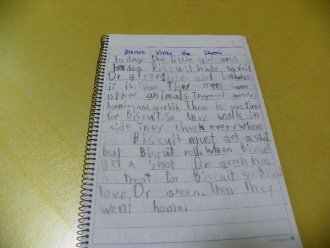 Biscuit Visits the Doctor
Today the little girl and
her dog Biscuit have to visit
Dr green! Little girl
is it fun They meet some
other animals They meet
bunnies and a Then is was time
for Biscuit. So they walk in
side They check every where
Biscuit must get a shot
but Biscuit roll. When Biscuit
get a shot Dr green has
treat for Biscuit
love Dr green. Then They
went home.